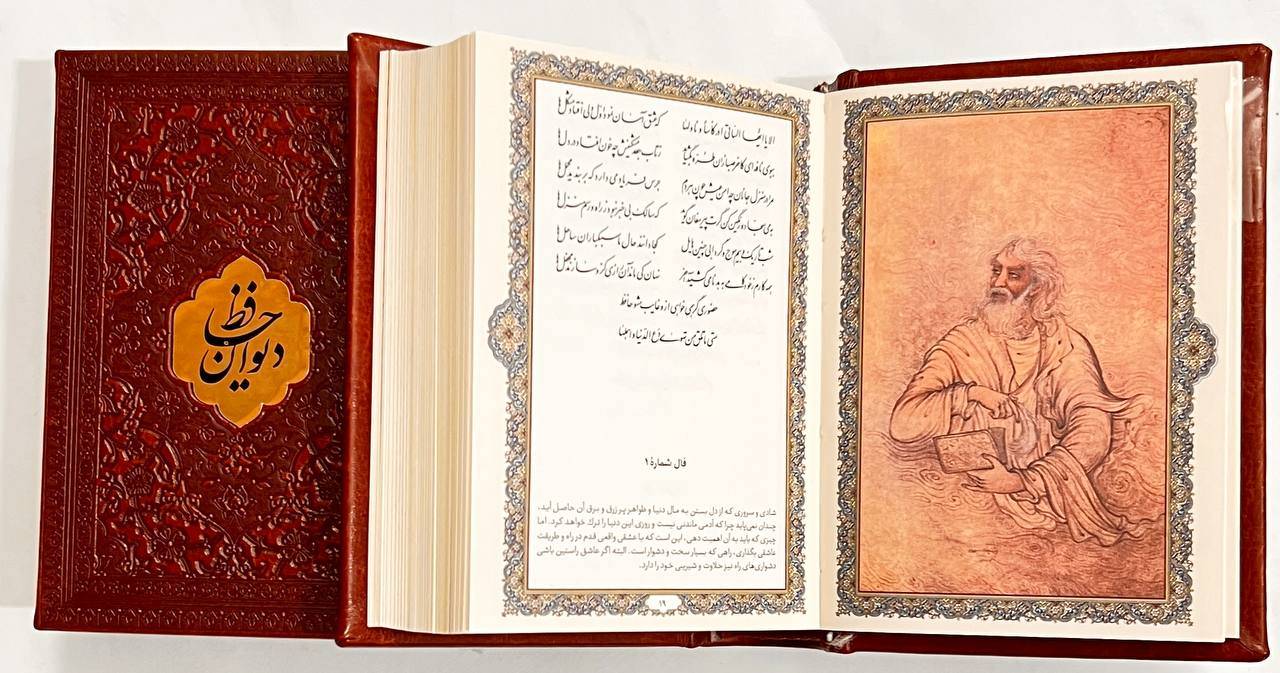 دیوان حافظ
الا یا ایها الساقی ادر کاسا و ناولها
که عشق آسان نمود اول ولی افتاد مشکل‌ها
ببوی نافه‌ای کاخر صبا زان طره بگشاید
ز تاب جعد مشکینش چه خون افتاد در دل‌ها
مرا در منزل جانان چه امن عیش چون هر دم
جرس فریاد می‌دارد که بربندید محمل‌ها
به می سجاده رنگین کن گرت پیر مغان گوید
که سالک بی‌خبر نبود ز راه و رسم منزل‌ها
شب تاریک و بیم موج و گردابی چنین هایل
کجا دانند حال ما سبکباران ساحل‌ها
همه کارم ز خود کامی به بدنامی کشید آخر
نهان کی ماند آن رازی کزو سازند محفل‌ها
حضوری گر همی خواهی ازو غایب مشو حافظ
متی ما تلق من تهوی دع الدنیا و اهملها
فال شمارهٔ ۱
شادی و سروری که از دل بستن به مال دنیا و ظواهر پر زرق و برق آن حاصل آید،
چندان نمی‌پاید چرا که آدمی ماندنی نیست و روزی این دنیا را ترک خواهد کرد. اما
چیزی که باید به آن اهمیت دهی، این است که با عشقی واقعی قدم در راه و طریقت
عاشقی بگذاری، راهی که بسیار سخت و دشوار است. البته اگر عاشق راستین باشی
دشواری‌های راه نیز حلاوت و شیرینی خود را دارد.
۱۹